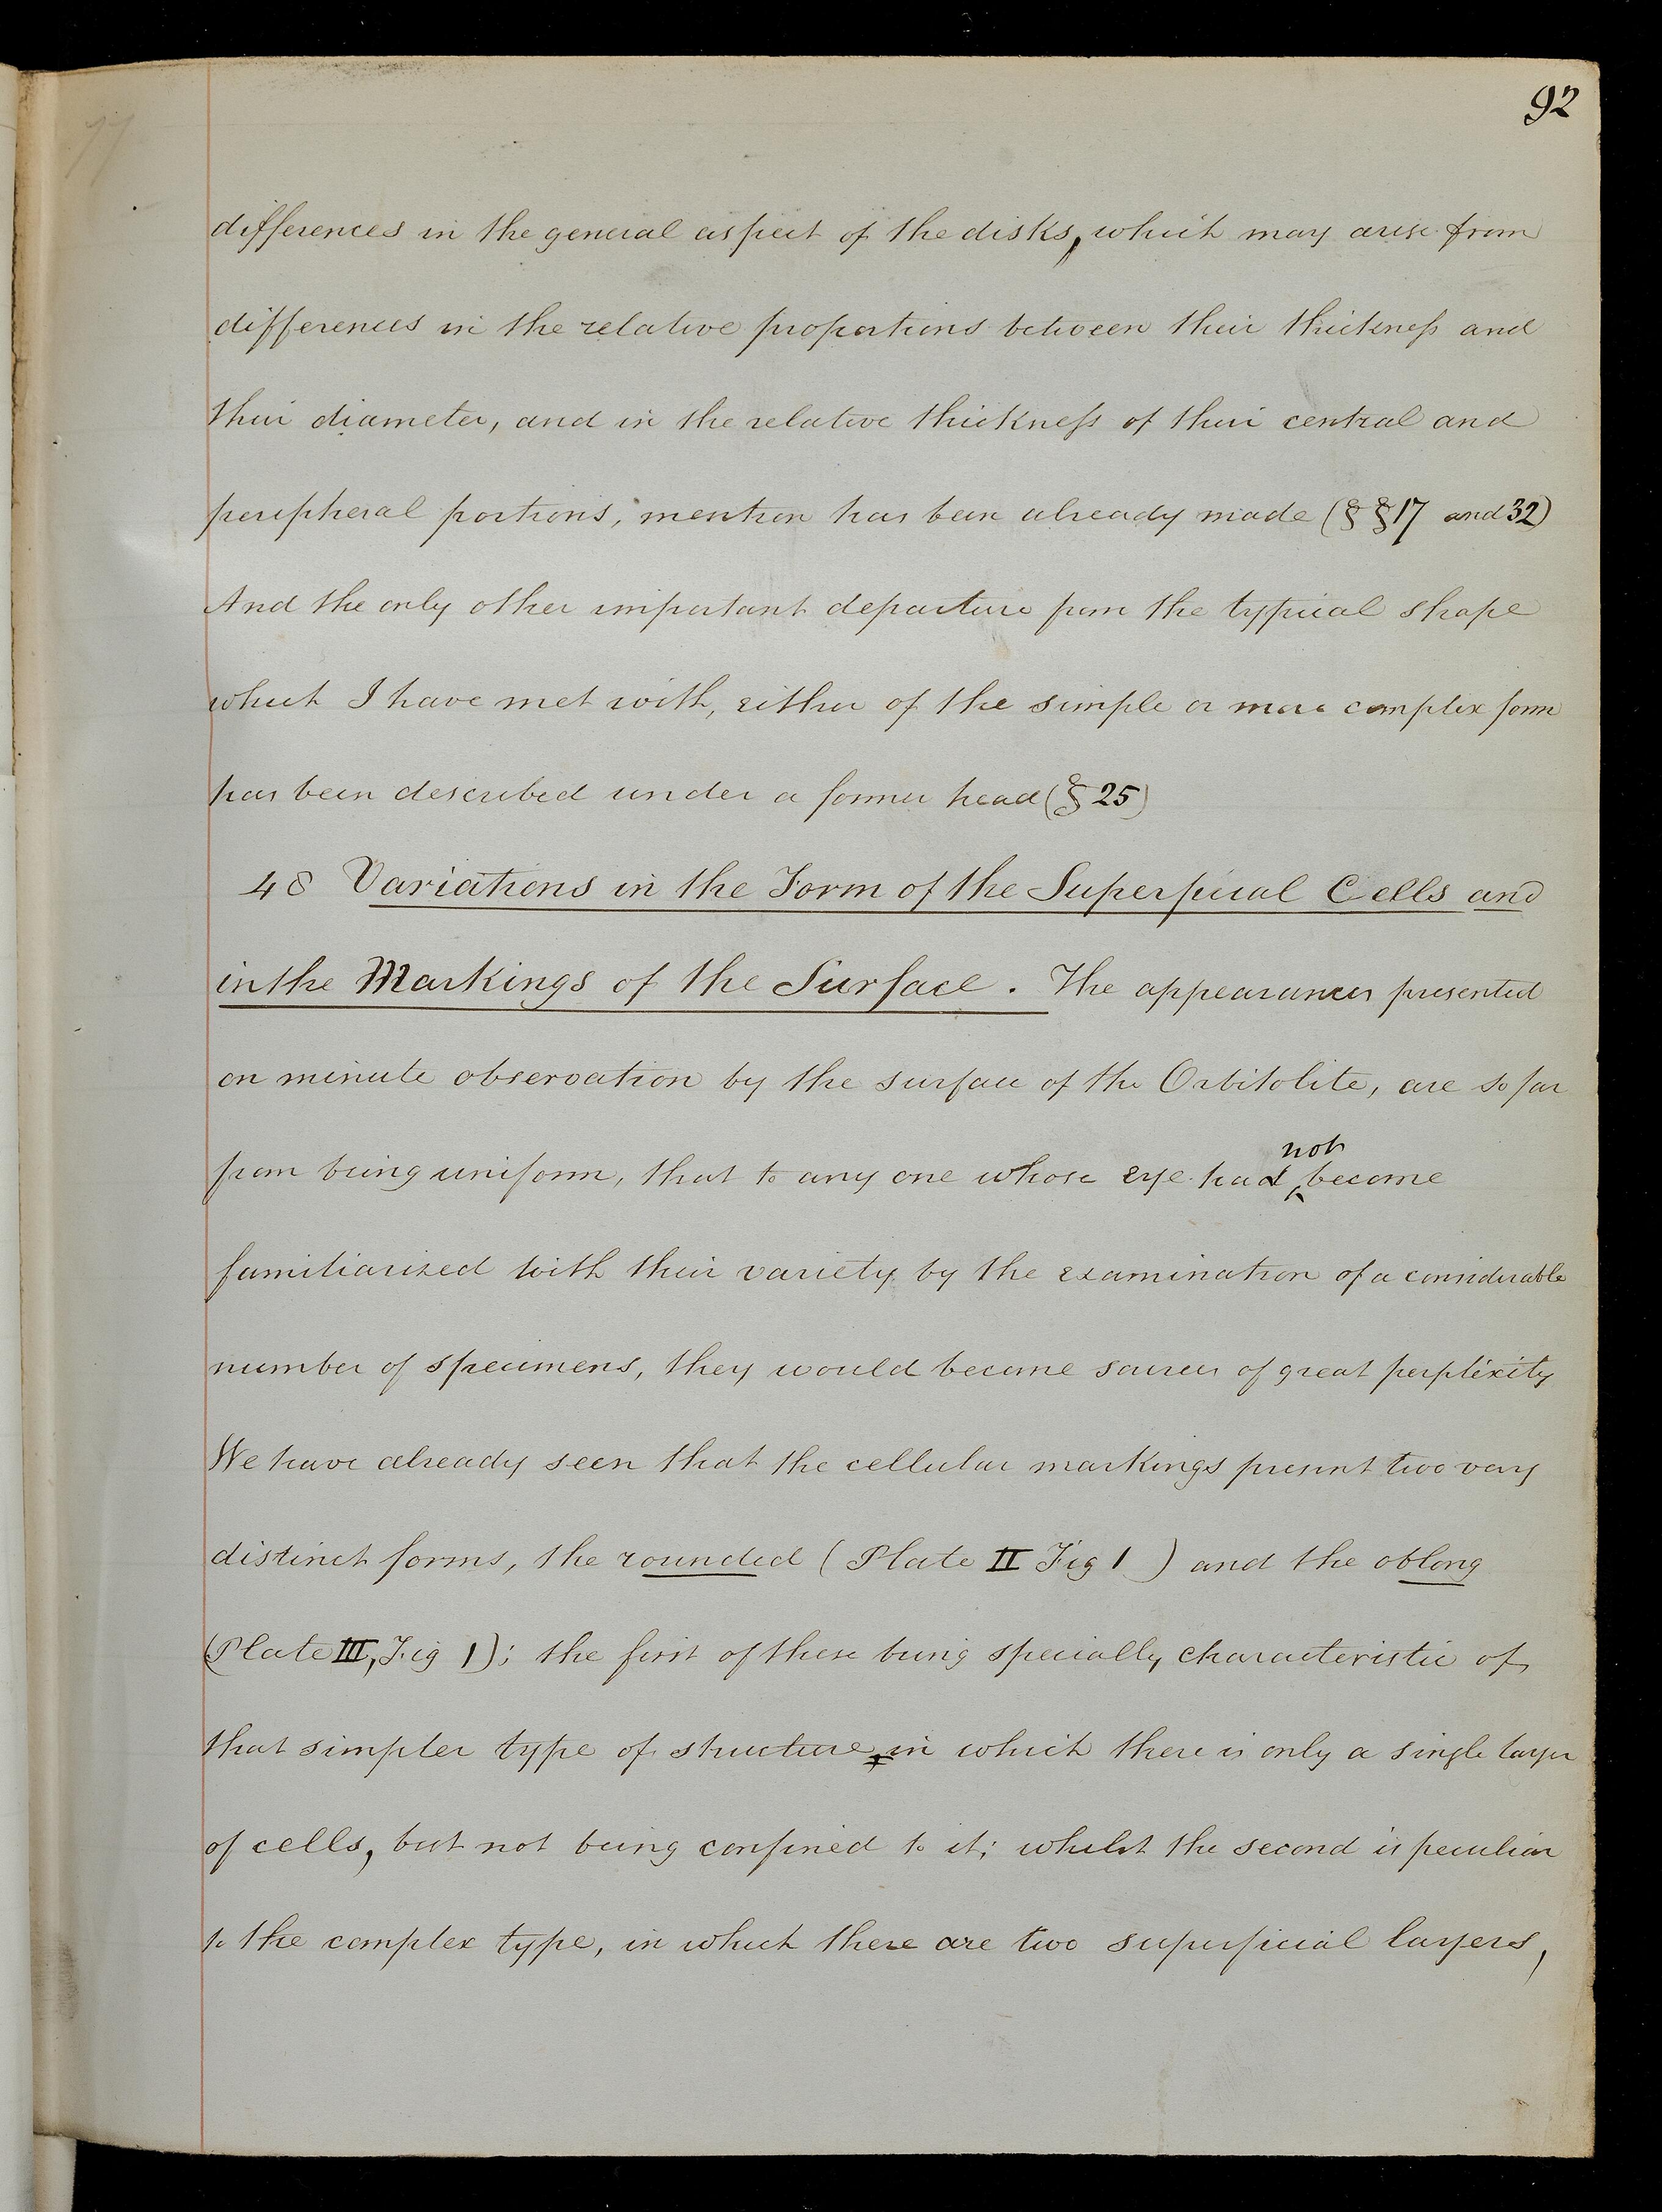 92
differences in the general aspect of the disks, which may arise from
differences in the relative proportions between their thickness and
their diameter, and in the relative thickness of their central and
peripheral portions, mention has been already made (§§17 and 32)
And the only other important departure from the typical shape
which I have met with, either of the simple or more complex form
has been described under a former head (§ 25)
48 Variations in the Form of the Superficial Cells and
in the Markings of the Surface. The appearances presented
on minute observation by the surface of the Orbitolite, are so far
from being uniform, that to any one whose eye had not become
familiarized with their variety by the examination of a considerable
number of specimens, they would become sources of great perplexity
We have already seen that the cellular markings present two very
distinct forms, the rounded (Plate II Fig 1) and the oblong
(Plate III, Fig 1); the first of these being specially characteristic of
that simpler type of structure in which there is only a single layer
of cells, but not being confined to it; whilst the second is peculiar
to the complex type, in which there are two superficial layers,